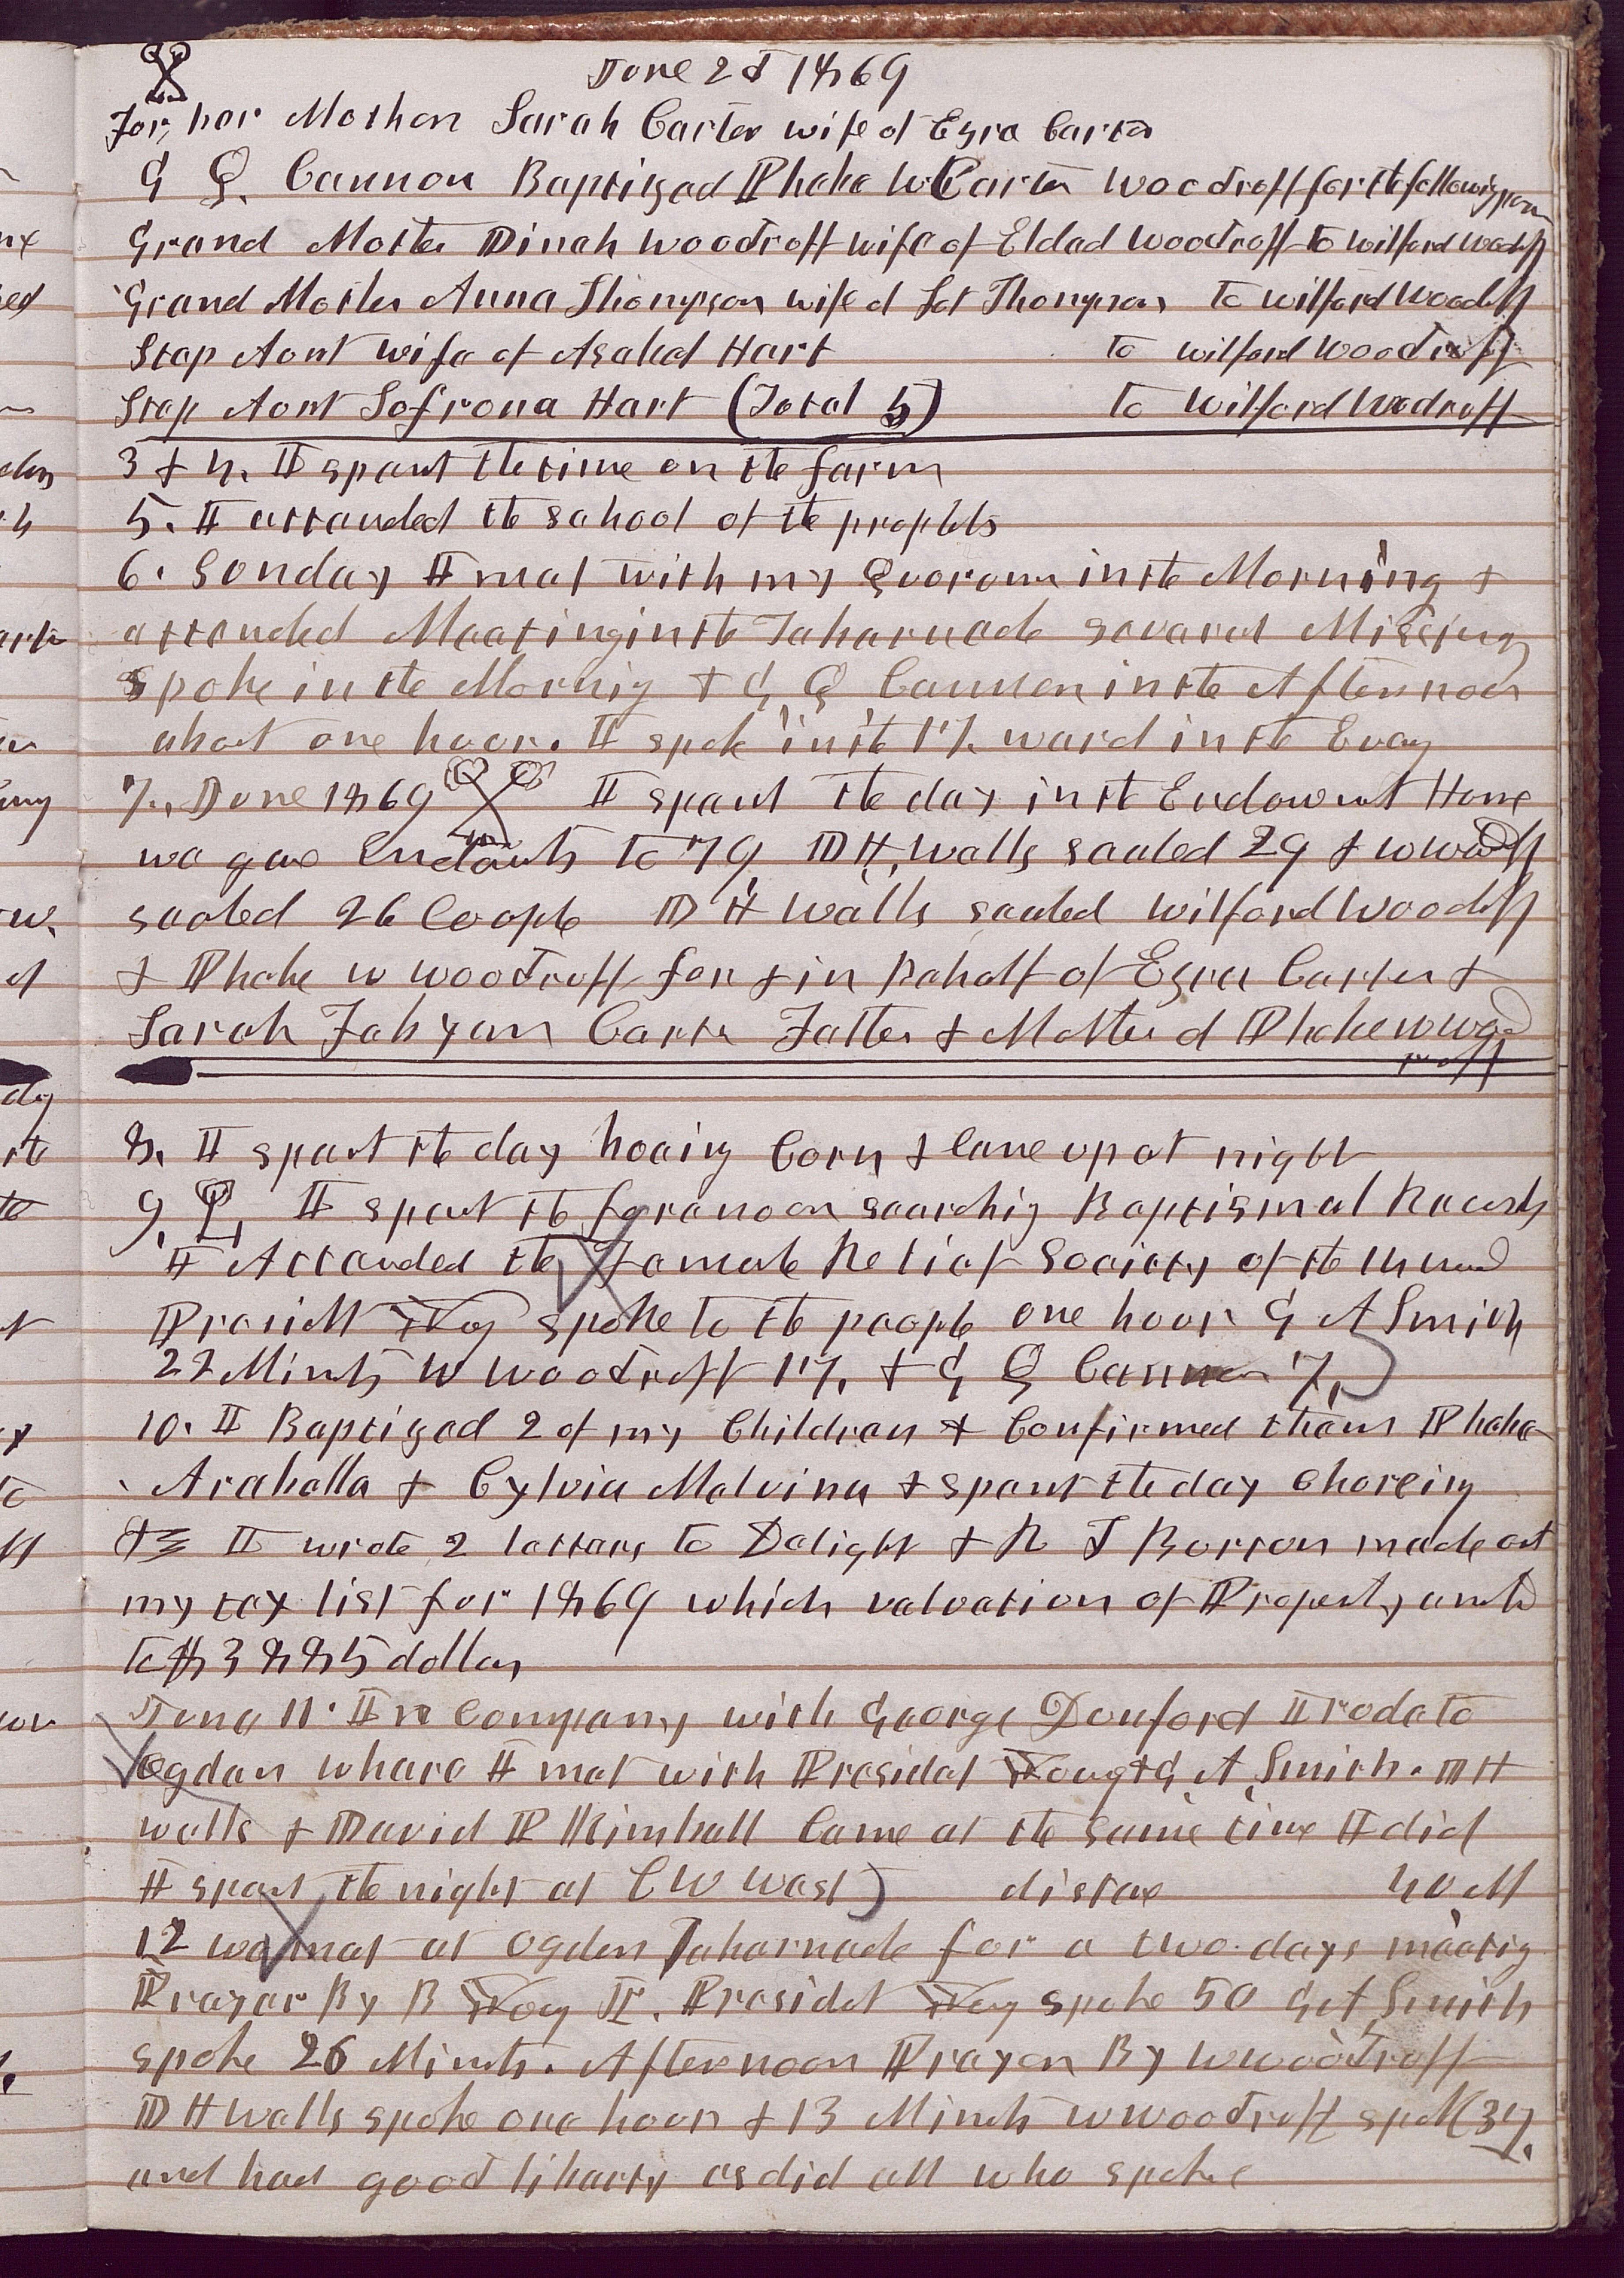 June 2d 1869
For her Mother Sarah Carter wife of Ezra Carter
G Q. Cannon Baptized Phebe W Carter Woodruff for the following persons
Grand Mother Dinah Woodruff wife of Eldad Woodruff to Wilford Woodruff
Grand Mother Anna Thompson wife of Lot Thompson to Wilford Woodruff
Step Aunt wife of Asahel Hart to Wilford Woodruff
Step Aunt Sofrona Hart (Total 5) to Wilford Woodruff
3 & 4. I spent the time on the farm
5. I attended the school of the prophets
6. Sunday I met with my Quorum in the Morning &
attended Meeting in the Tabernacle several Missing
spoke in the Morning & G Q Cannon in the Afternoon
about one hour. I spoke in the 17 ward in the Eveng
7. June 1869 I spent the day in the Endowmet House
we gave Endowmts to 79 D H. Wells sealed 29 & W Woodruff
sealed 26 Couple D H Wells sealed Wilford Woodruff
& Phebe W Woodruff for & in Behalf of Ezra Carter &
Sarah Fabyan Carter Father & Mother of Phebe W Wood
ruff
8. I spent the day hoeing Corn & Cane up at night
9. I spent the forenoon searching Baptismal Records
I Attended the Female Relief Society of the 14 ward
Presidt Young spoke to the people one hour G A Smith
22 Minuts W Woodruff 17, & G Q Cannon 7,
10. I Baptized 2 of my Children & Confirmed them Phebe
Arabella & Cylvia Melvina & spent the day choreing
I wrote 2 letters to Delight & R J Burton made out
my tax list for 1869 which valuation of Property amtd
to $3885 dollars
June 11. In Company with George Dunford I rode to
Ogden whare I met with Presidet Young & G A Smith. D H
Wells & David P Kimball Came at the same time I did
I spent the night at C W West) distace 40 M
12 we met at Ogden Tabernacle for a two days meeting
Prayer By B Young Jr. Presidet Young spoke 50 G A Smith
spoke 26 Minuts. Afternoon Prayer By W Woodruff
D H Wells spoke one hour & 13 Minuts W Woodruff spoke 37,
and had good liberty as did all who spoke